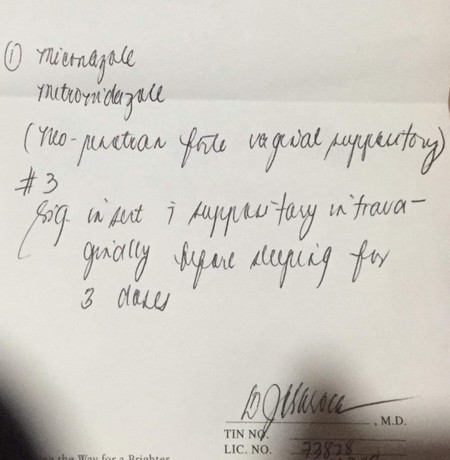 ① Miconazole
Metronidazole
(Neo-penotran forte vaginal suppository)
#3
Sig. insert i suppository intrava-
ginally before sleeping for
3 doses
, M.D.
TIN NO.
LIC. NO. 73828
the Way for a Brighter